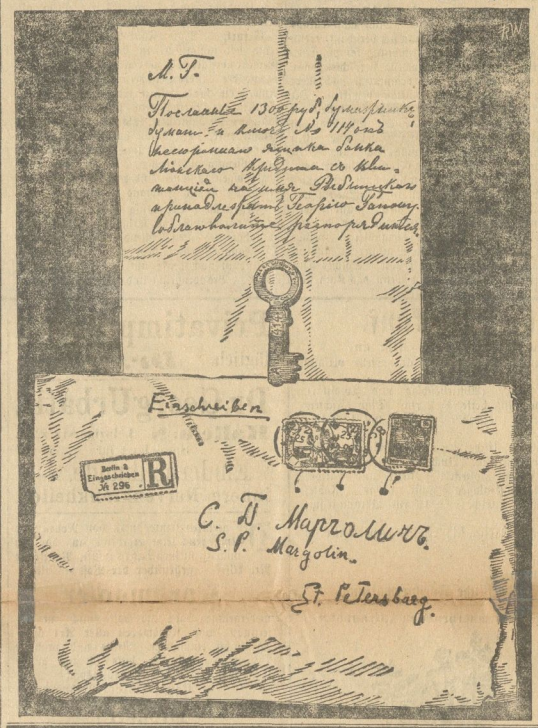 М. Г.
Посланные 1300 руб, бумажник,
бумаг. и ключ № 114 отъ
несгораемаго ящика банка
Ліонскаго Кредита съ кви-
танціей на имя
принадлежатъ Георгію Гапону,
соблаговолите распорядиться.
114
Einschreiben
Berlin 8
Eingeschrieben
№ 296
R
С. П. Марголинъ.
S. P. Margolin.
St. Petersburg.